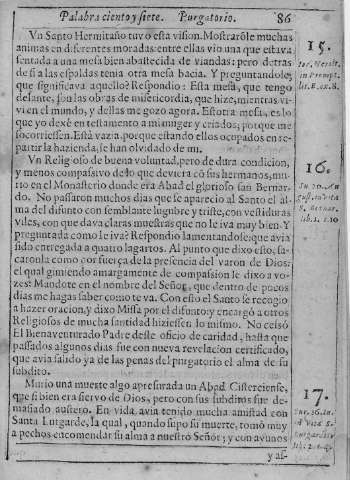 Palabra ciento y siete. Purgatorio. 86
Vn Santo Hermitaño tuvo esta vision. Mostraròle muchas
animas en diferentes moradas: entre ellas vio vna que estava
sentada a vna mesa bien abastecida de viandas: pero detras
de si a las espaldas tenia otra mesa bacia. Y preguntandole,
que significava aquello? Respondio: Esta mesa, que tengo
delante, son las obras de misericordia, que hize, mientras vi-
vi en el mundo, y dellas me gozo agora. Estotra mesa, es lo
que yo dexè en testamento a mi muger y criados, porque me
socorriessen. Està vazia, porque estando ellos ocupados en re-
partir la hazienda, se han olvidado de mi.
Vn Religioso de buena voluntad, pero de dura condicion,
y menos compassivo de lo que deviera cõ sus hermanos, mu-
rio en el Monasterio donde era Abad el glorioso san Bernar-
do. No passaron muchos dias que se aparecio al Santo el al-
ma del difunto con semblante lugubre y triste, con vestiduras
viles, con que dava claras muestras que no le iva muy bien. Y
preguntada como le iva? Respondio lamentandose: que avia
sido entregada a quatro lagartos. Al punto que dixo esto, sa-
caronla como por fuerça de la presencia del varon de Dios;
el qual gimiendo amargamente de compassion le dixo a vo-
zes: Mandote en el nombre del Señor, que dentro de pocos
dias me hagas saber como te va. Con esto el Santo se recogio
a hazer oracion, y dixo Missa por el difunto; y encargò a otros
Religiosos de mucha santidad hiziessen lo mismo. No cessò
El Bienaventurado Padre deste oficio de caridad, hasta que
passados algunos dias fue con nueva revelacion certificado,
que avia salido ya de las penas del purgatorio el alma de su
subdito.
Murio vna muerte algo apresurada vn Abad Cisterciense,
que si bien era siervo de Dios, pero con sus subditos fue de-
masiado austero. En vida avia tenido mucha amistad con
Santa Lutgarde, la qual, quando supo su muerte, tomò muy
a pechos encomendar su alma a nuestro Señor; y con ayunos
y as-
15.
16.
17.